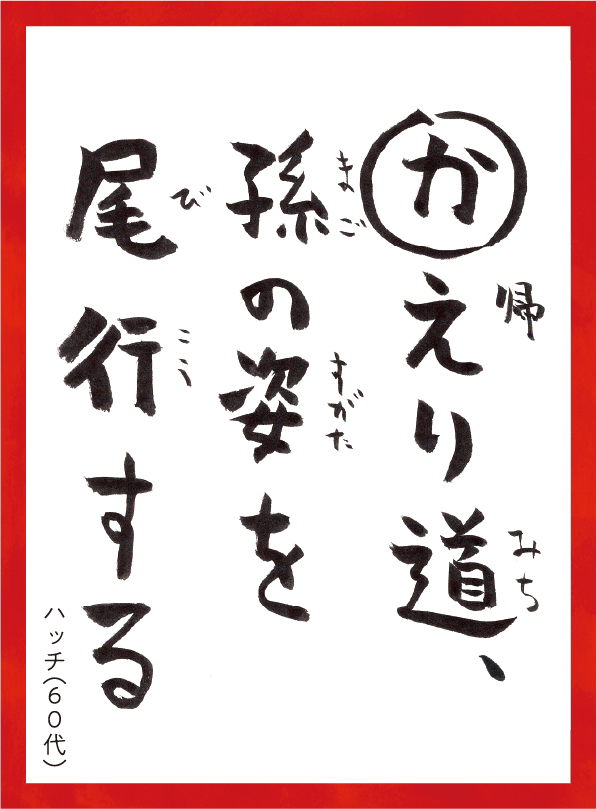 かえり道、
帰
みち
孫の姿を
まご
すがた
尾行する
びこう
ハッチ(60代)